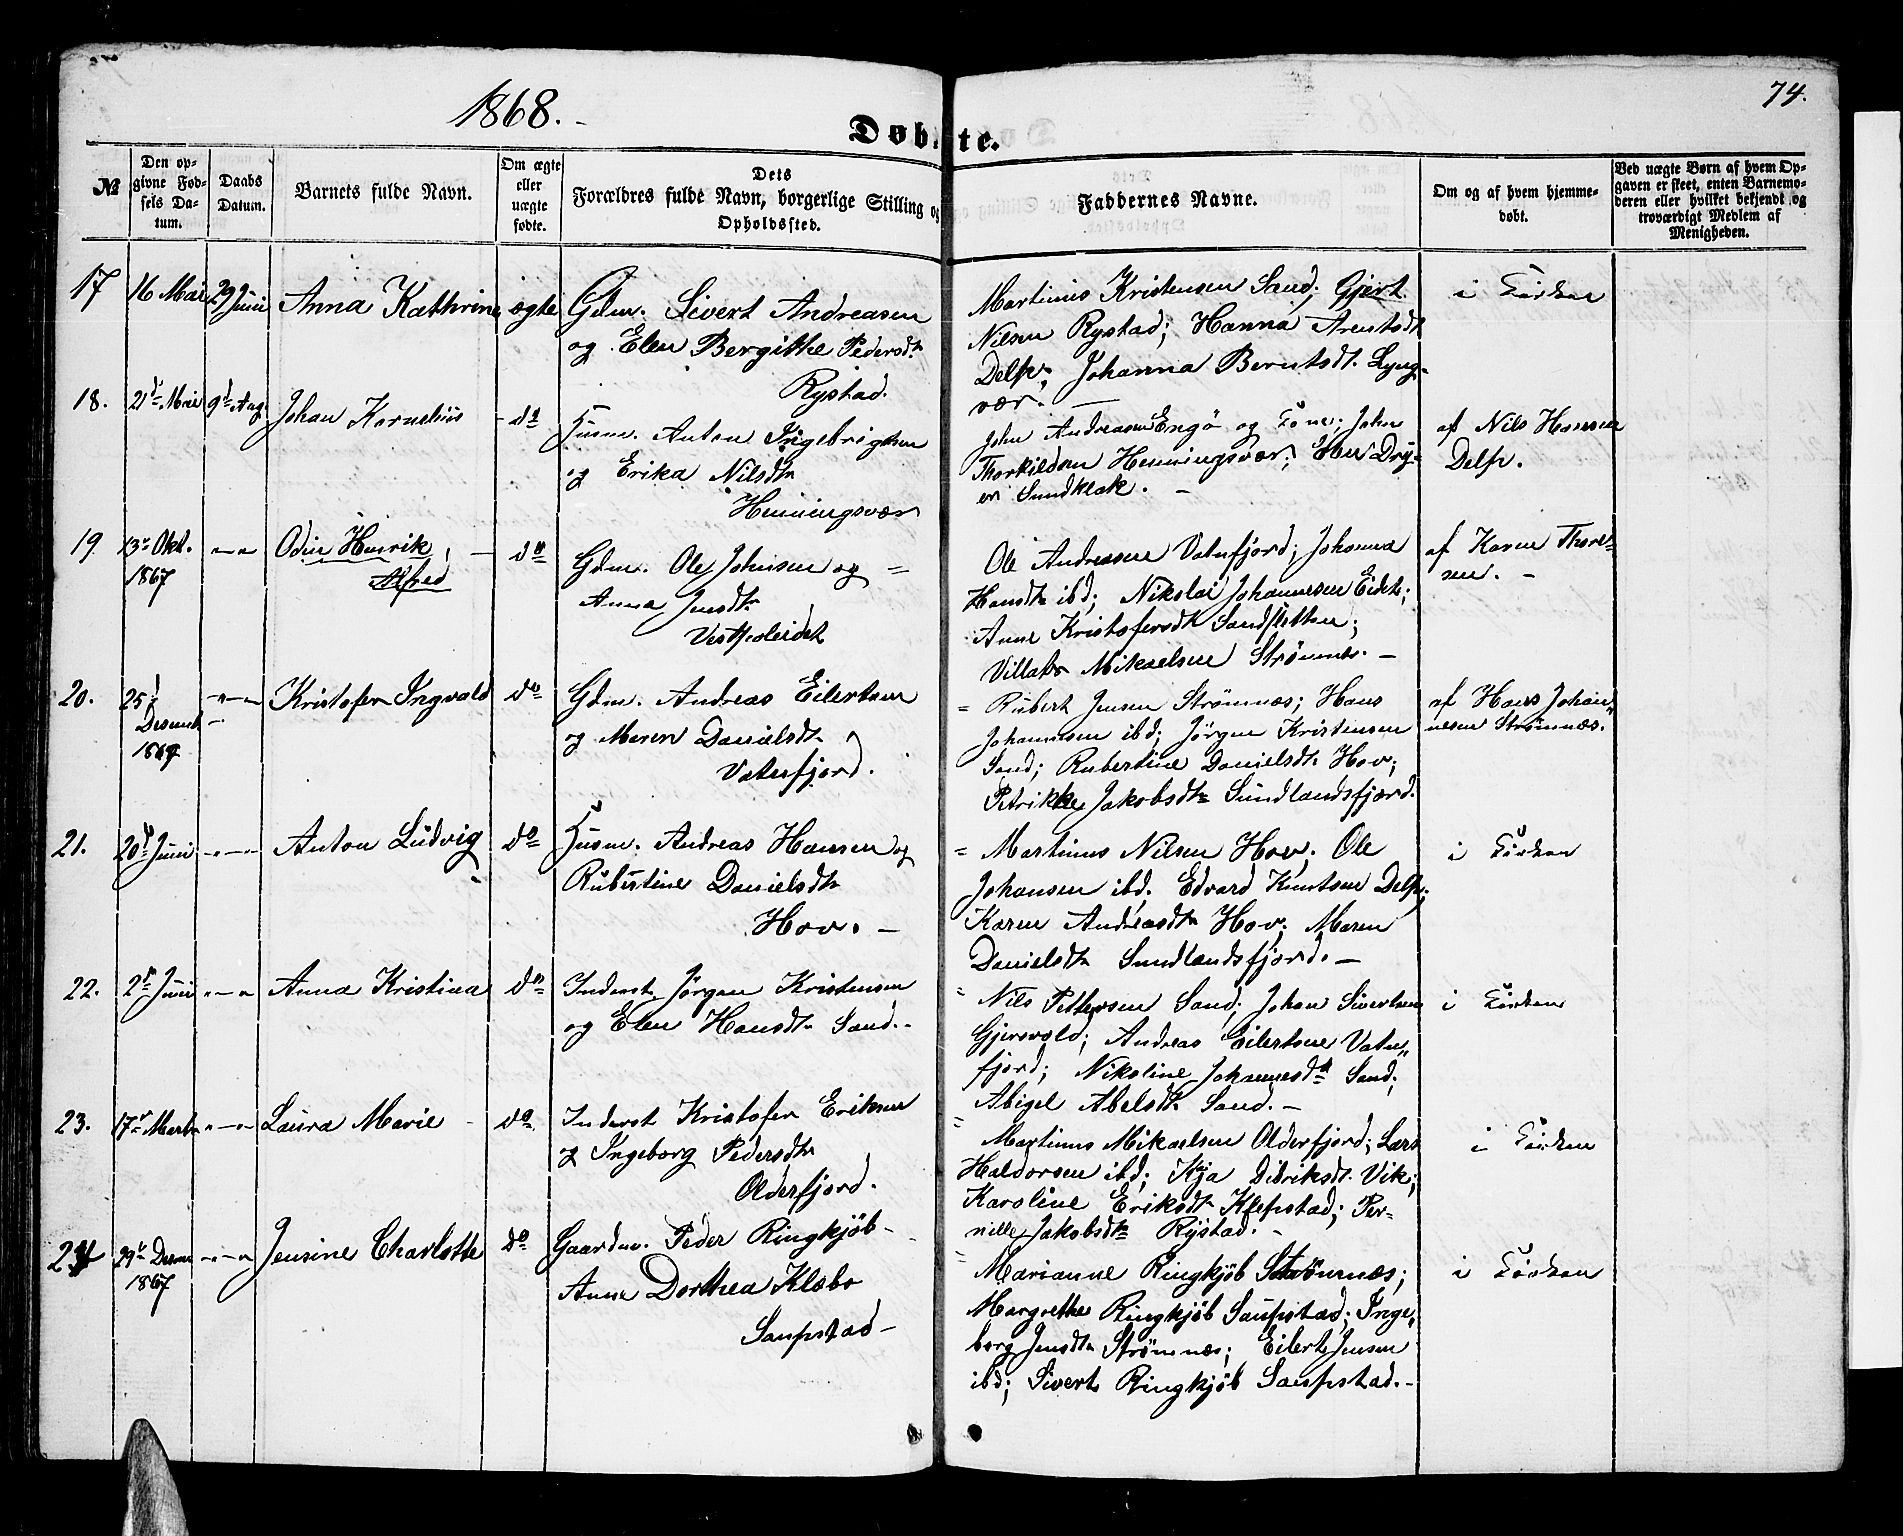 1868.
74.
Døbte.
№
Den opgivne Fødsels Datum.
Daabs Datum.
Barnets fulde Navn.
Om ægte eller uægte fødte.
Dets Forældres fulde Navn, borgerlige Stilling og Opholdssted.
Faddernes Navne.
Om og af hvem hjemmedøbt.
Ved uægte Børn af hvem Opgaven er skeet, enten Barnemoderen eller hvilket bekjendt og troværdigt Medlem af Menigheden.
17 16 Mai 29 Juni Anna Kathrine ægte
Gdm. Sivert Andreasen
og Elen Bergitte Pedersdt.
Rystad.
Martinus Kristensen Sand; Gjert
Nilsen Rystad; Hanna Arentsdt
Delp; Johanna Berntsdt. Lyng-
vær.
i Kirken
18. 21d Mai 9d Aug. Johan Kornelius do
Husm. Anton Ingebrigtsen
og Erika Nilsdt
Henningsvær
John Andreasen Engø og Kone; John
Thorkildsen Henningsvær; Herr Dry-
er Sundklak.
af Nils Hansen
Delp.
19 13de Okt. 1867 " — " Odin Henrik Alfred do
Gdm. Ole Johnsen og
Anna Jensdt
Vestpoleidet
Ole Andreasen Vatnfjord; Johanna
Hansdt ibd; Nikolai Johannesen Eidet;
Anne Kristofersdt Sandsletten;
Mikaelsen Strømnes.
af Karen Thore-
sen.
20. 25 Desemb 1867 " — " Kristofer Ingvald do
Gdm. Andreas Eilertsen
og Maren Danielsdt
Vatnfjord.
Rubert Jensen Strømnæs; Hans
Johannesen ibd; Jörgen Kristensen
Sand; Rubertine Danielsdt Hov;
Petrikke Jakobsdt Sundlandsfjord.
af Hans Johan-
nesen Strømnæs.
21. 20de Juni " — " Anton Ludvig do
Husm. Andreas Hansen og
Rubertine Danielsdt
Hov.
Martinus Nilsen Hov; Ole
Johansen ibd; Edvard Knutsen Delp;
Karen Andreasdt Hov; Maren
Danielsdt Sundlandsfjord.
i Kirken
22. 2de Juni " — " Anna Kristina do
Inderst Jørgen Kristensen
og Elen Hansdt Sand.
Nils Pettersen Sand; Johan Sivertsen
Gjersvold; Andreas Eilertsen Vatn-
fjord; Nikoline Johannesdt Sand;
Abigel Abelsdt Sand.
i Kirken
23. 17de Marts " — " Laura Marie do
Inderst Kristofer Eriksen
og Ingeborg Pedersdt
Olderfjord.
Martinus Mikaelsen Olderfjord; Lars
Haldorsen ibd; Kaja Didriksdt. Vik;
Karoline Eriksdt Klepstad; Per-
nille Jakobsdt Rystad.
i Kirken
24 29de Desem 1867 " — " Jensine Charlotte do
Gaardm. Peder Ringkjøb
Anne Dorthea Klæbo
Saupstad
Marianne Ringkjøb Strømnæs;
Margrethe Ringkjøb Saupstad; Inge-
borg Jensdt Strømnæs; Eilert Jensen
ibd; Sivert Ringkjøb Saupstad.
i Kirken